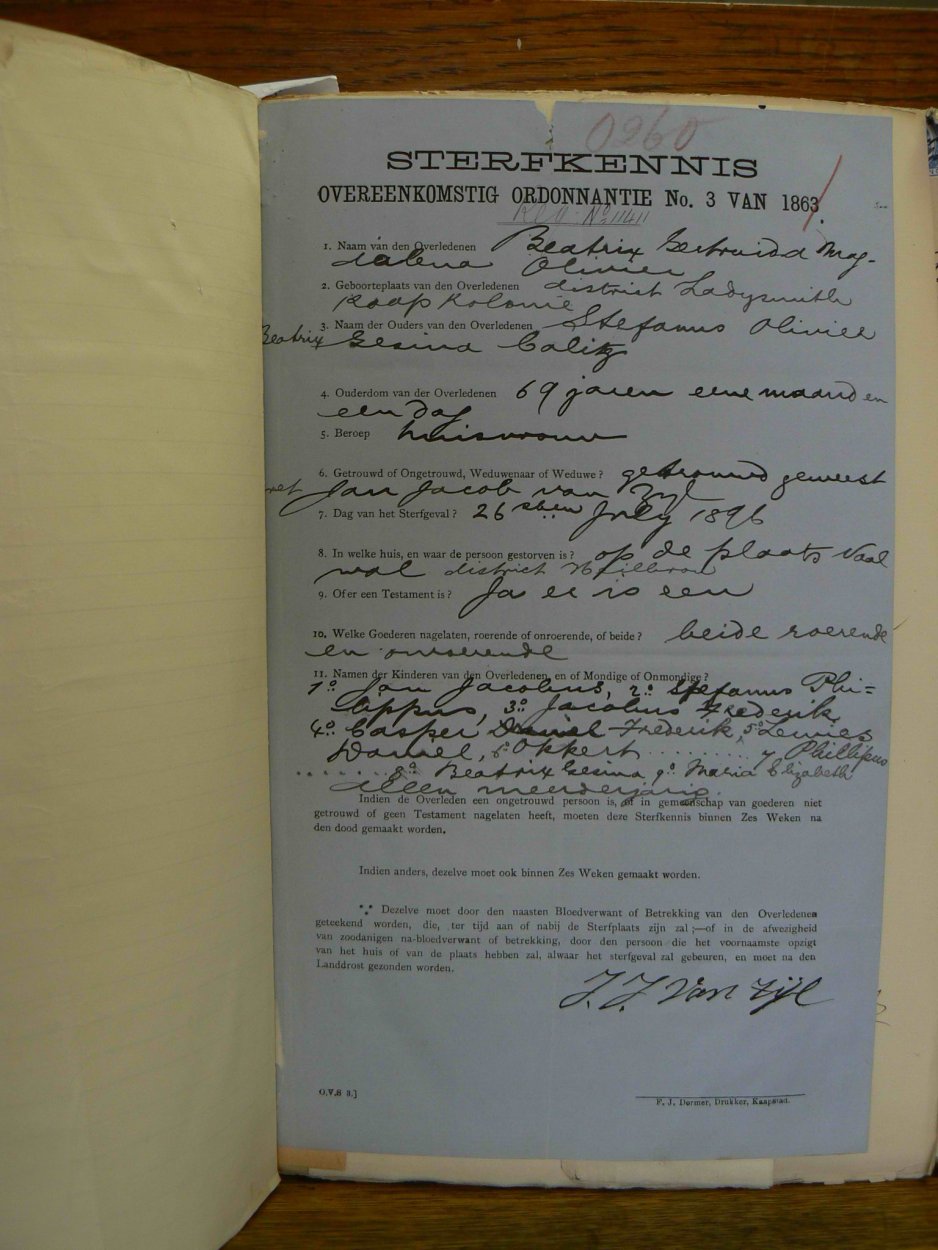 0260
STERFKENNIS
OVEREENKOMSTIG ORDONNANTIE No. 3 VAN 1863.
No 11411
1. Naam van den Overledenen Beatrix Gertruida Mag-
dalena Olivier
2. Geboorteplaats van den Overledenen district Ladysmith
Kaap Kolonie
3. Naam der Ouders van den Overledenen Stefanus Olivier
Beatrix Gesina Calitz
4. Ouderdom van der Overledenen 69 jaren eene maand en
een dag
5. Beroep huisvrouw
6. Getrouwd of Ongetrouwd, Weduwenaar of Weduwe? getrouwd geweest
met Jan Jacob van Zyl
7. Dag van het Sterfgeval? 26sten July 1896
8. In welke huis, en waar de persoon gestorven is? op de plaats Vaal
wal district Heilbron
9. Of er een Testament is? Ja er is een
10. Welke Goederen nagelaten, roerende of onroerende, of beide? beide roerende
en onroerende
11. Namen der Kinderen van den Overledenen, en of Mondige of Onmondige?
1o. Jan Jacobus, 2o. Stefanus Phi=
lippus, 3o. Jacobus Frederik
4o. Casper Frederik, 5o Louwies
Daniel, 6o Okkert ......... 7 Phillipus
........ 8o. Beatrix Gesina, 9o. Maria Elizabeth
allen meerderjarig.
Indien de Overleden een ongetrouwd persoon is, of in gemeenschap van goederen niet
getrouwd of geen Testament nagelaten heeft, moeten deze Sterfkennis binnen Zes Weken na
den dood gemaakt worden.
Indien anders, dezelve moet ook binnen Zes Weken gemaakt worden.
*** Dezelve moet door den naasten Bloedverwant of Betrekking van den Overledenen
geteekend worden, die, ter tijd aan of nabij de Sterfplaats zijn zal;—of in de afwezigheid
van zoodanigen na-bloedverwant of betrekking, door den persoon die het voornaamste opzigt
van het huis of van de plaats hebben zal, alwaar het sterfgeval zal gebeuren, en moet na den
Landdrost gezonden worden.
J. J. Van Zijl
O.V.S 3.]
F. J. Dormer, Drukker, Kaapstad.